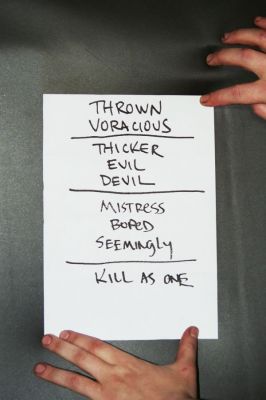 THROWN
VORACIOUS
THICKER
EVIL
DEVIL
MISTRESS
BORED
SEEMINGLY
KILL AS ONE